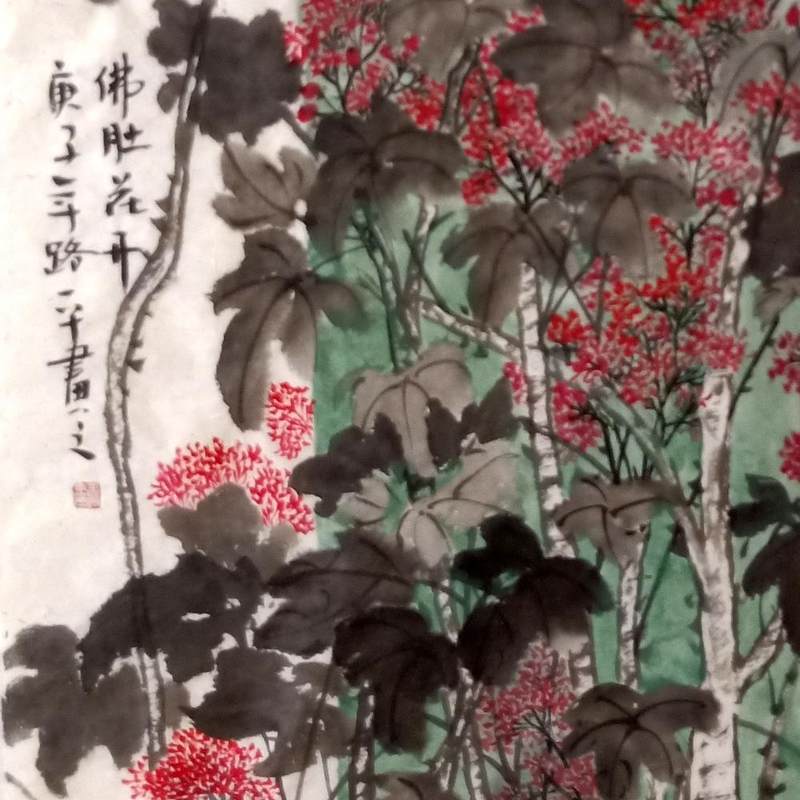 佛肚花开
庚子年路一平畫之